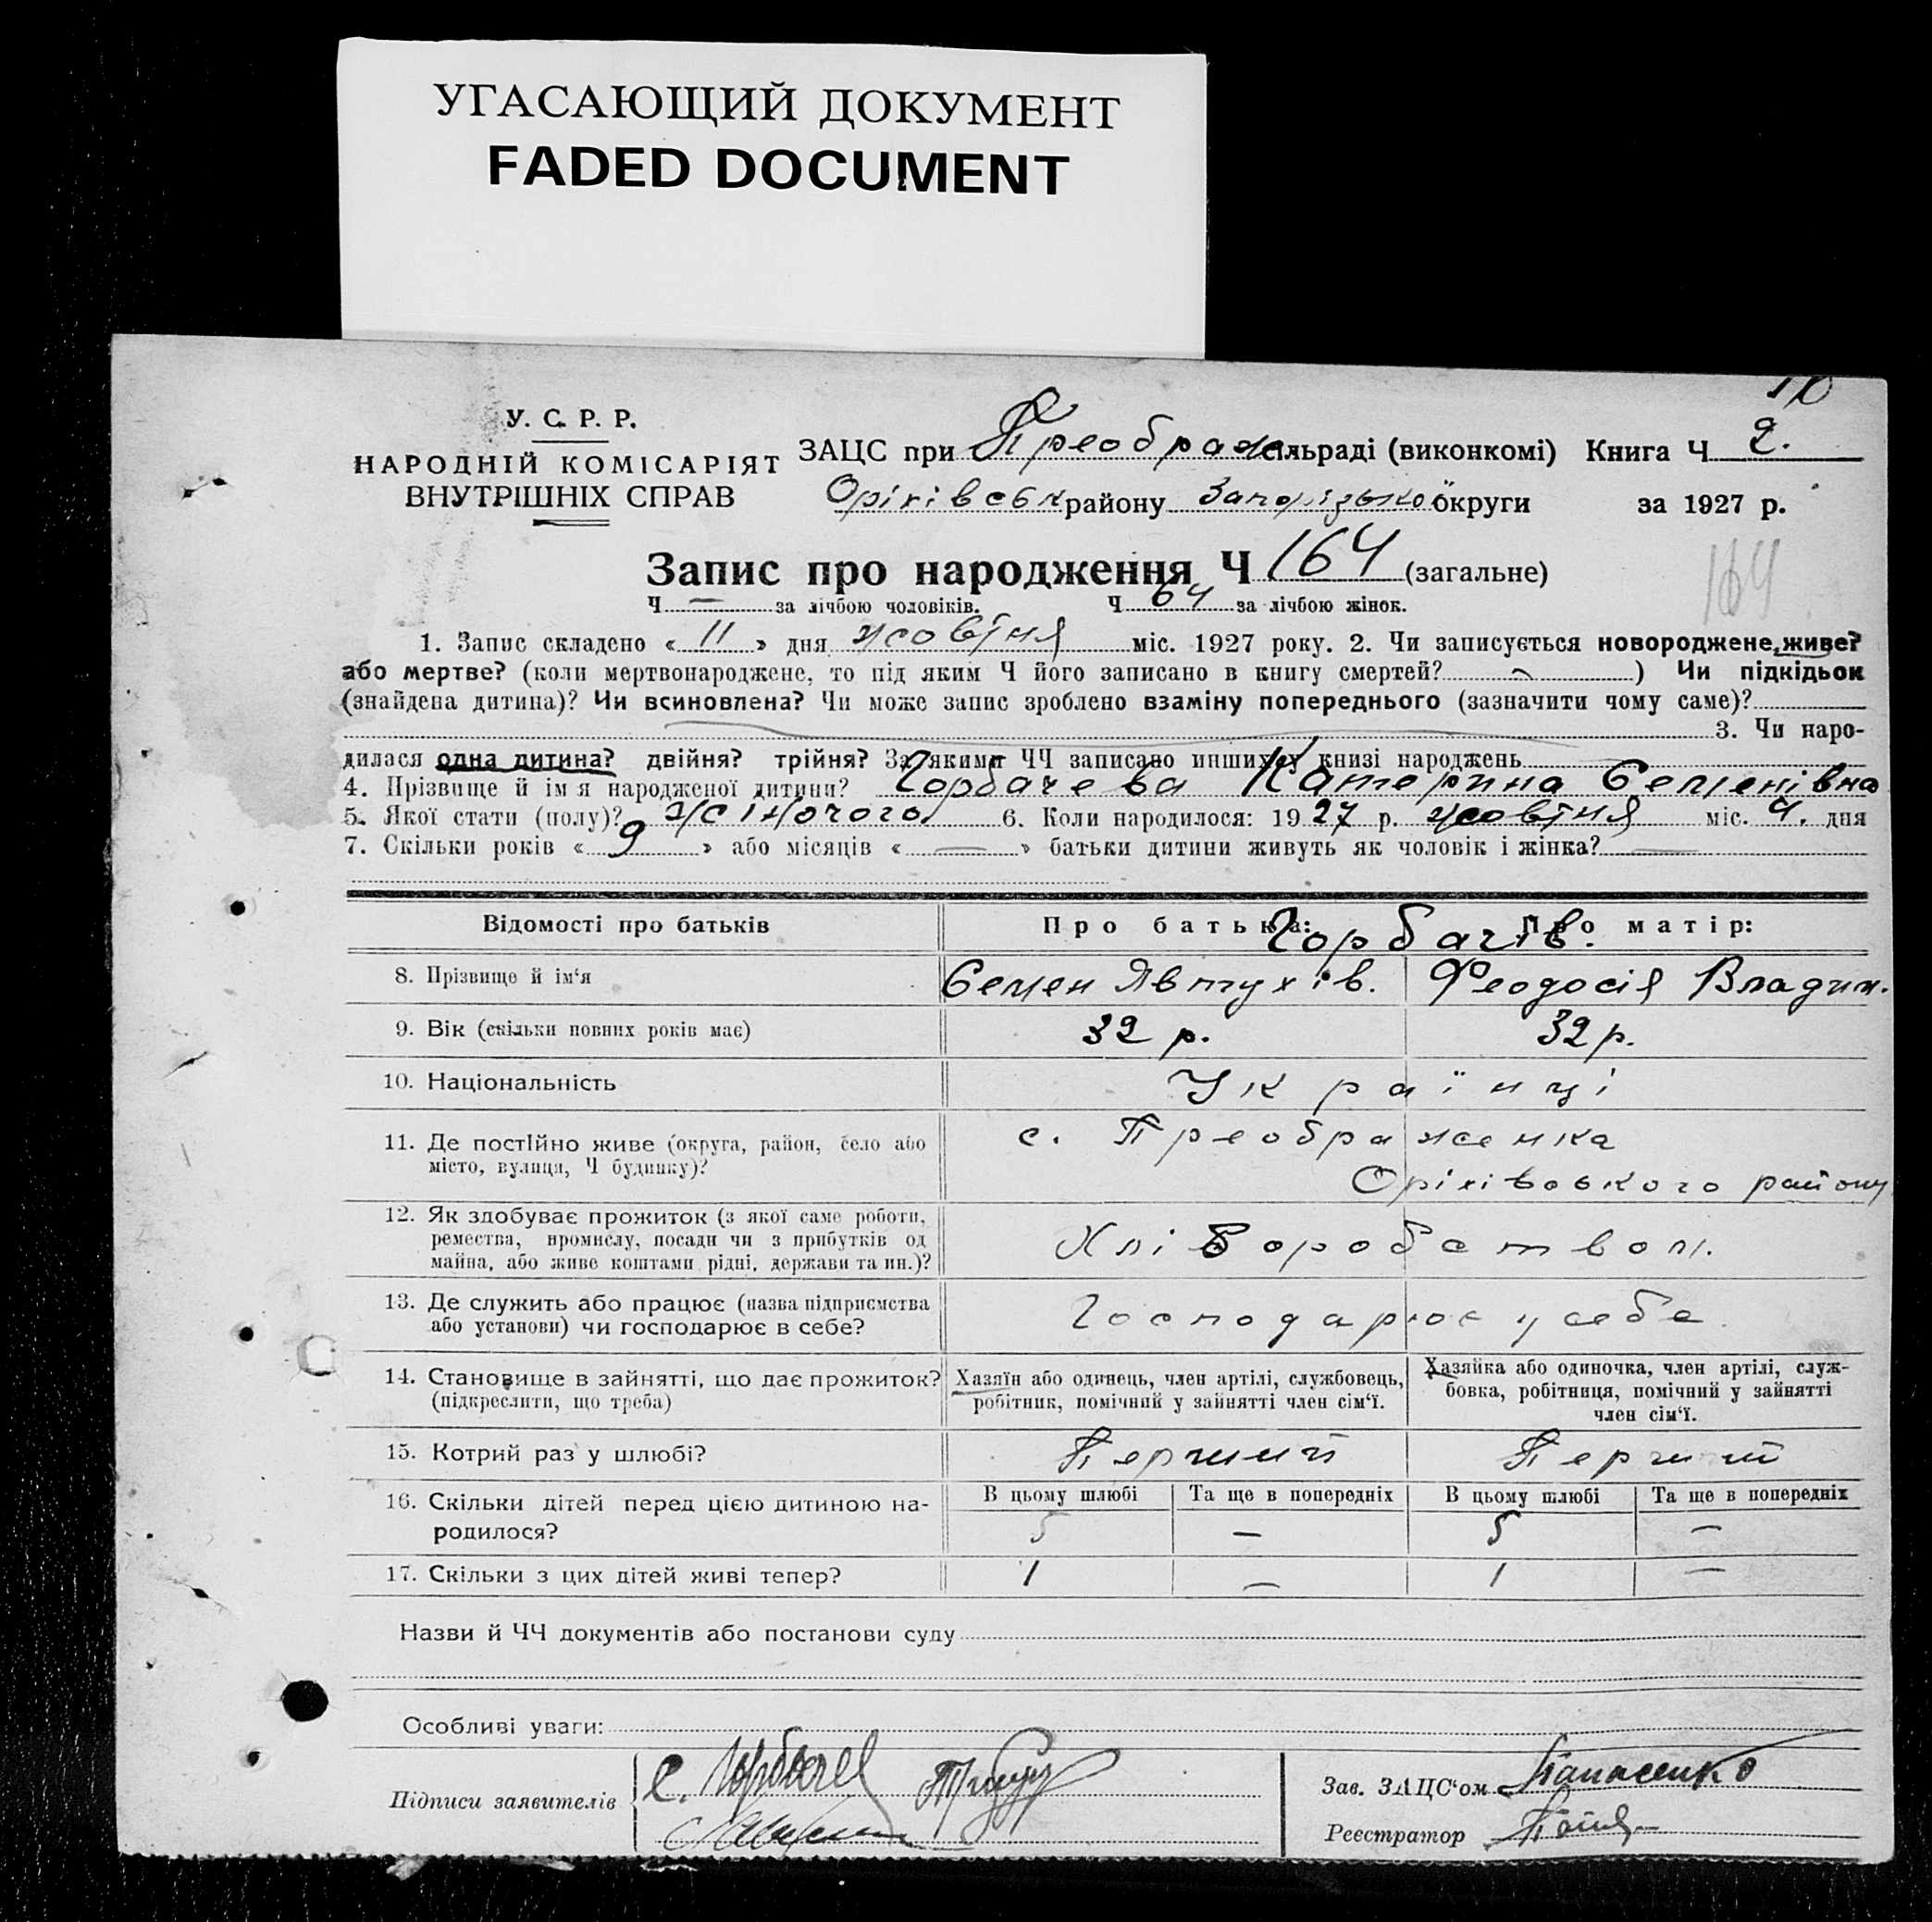 УГАСАЮЩИЙ ДОКУМЕНТ
FADED DOCUMENT
У. С. Р. Р.
НАРОДНІЙ КОМІСАРІЯТ
ВНУТРІШНІХ СПРАВ
ЗАЦС при Преображ сільраді (виконкомі) Книга Ч 2.
Оріхівськ району Запорізької округи за 1927 р.
Запис про народження Ч 164 (загальне)
164
Ч — за лічбою чоловіків. Ч 64 за лічбою жінок.
1. Запис складено « 11 » дня жовтня міс. 1927 року. 2. Чи записується новороджене живе?
або мертве? (коли мертвонароджене, то під яким Ч його записано в книгу смертей? — ) Чи підкідьок
(знайдена дитина)? Чи всиновлена? Чи може запис зроблено взаміну попереднього (зазначити чому саме)?
3. Чи наро-
дилася одна дитина? двійня? трійня? За якими ЧЧ записано инших у книзі народжень
4. Прізвище й ім'я народженої дитини? Горбачева Катерина Семенівна
5. Якої стати (полу)? жіночого 6. Коли народилося: 1927 р. жовтня міс. 4. дня
7. Скільки років « 9 » або місяців « — » батьки дитини живуть як чоловік і жінка? —
Відомості про батьків Про батька: Про матір:
Горбачів.
8. Прізвище й ім'я Семен Явтухів. Феодосія Владим.
9. Вік (скільки повних років має) 32 р. 32 р.
10. Національність Українці
11. Де постійно живе (округа, район, село або
місто, вулиця, Ч будинку)?
с. Преображенка
Оріхівського району
12. Як здобуває прожиток (з якої саме роботи,
ремества, промислу, посади чи з прибутків од
майна, або живе коштами рідні, держави та ин.)?
Хліборобством.
13. Де служить або працює (назва підприємства
або установи) чи господарює в себе?
Господарює у себе.
14. Становище в зайнятті, що дає прожиток?
(підкреслити, що треба)
Хазяїн або одинець, член артілі, службовець,
робітник, помічний у зайнятті член сім'ї.
Хазяйка або одиночка, член артілі, служ-
бовка, робітниця, помічний у зайнятті
член сім'ї.
15. Котрий раз у шлюбі? Перший Перший
16. Скільки дітей перед цією дитиною на-
родилося?
В цьому шлюбі Та ще в попередніх В цьому шлюбі Та ще в попередніх
5 — 5 —
17. Скільки з цих дітей живі тепер? 1 — 1 —
Назви й ЧЧ документів або постанови суду
Особливі уваги:
Підписи заявителів С. Горбачев
Зав. ЗАЦС'ом Панасенко
Реєстратор